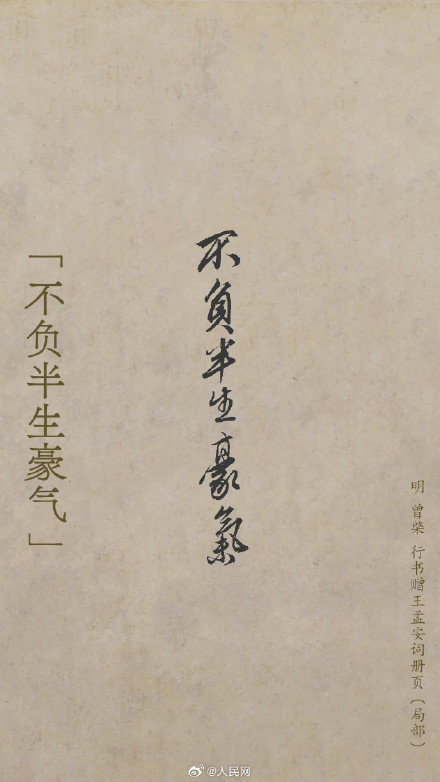 「不负半生豪气」
不負半生豪氣
明 曾棨 行书赠王孟安词册页（局部）
@人民网